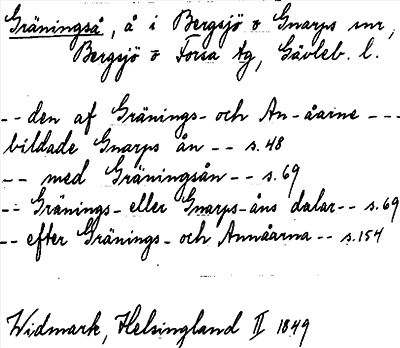 Gräningså, å i Bergsjö o Gnarps snr,
Bergsjö o Forsa tg, Gävleb. l.
-- den af Gränings- och An-åarne ---
bildade Gnarps ån -- s. 48
-- med Gräningsån -- s. 69
-- Gränings- eller Gnarps-åns dalar -- s. 69
-- efter Gränings- och Annåarna -- s. 154
Widmark, Helsingland II 1849